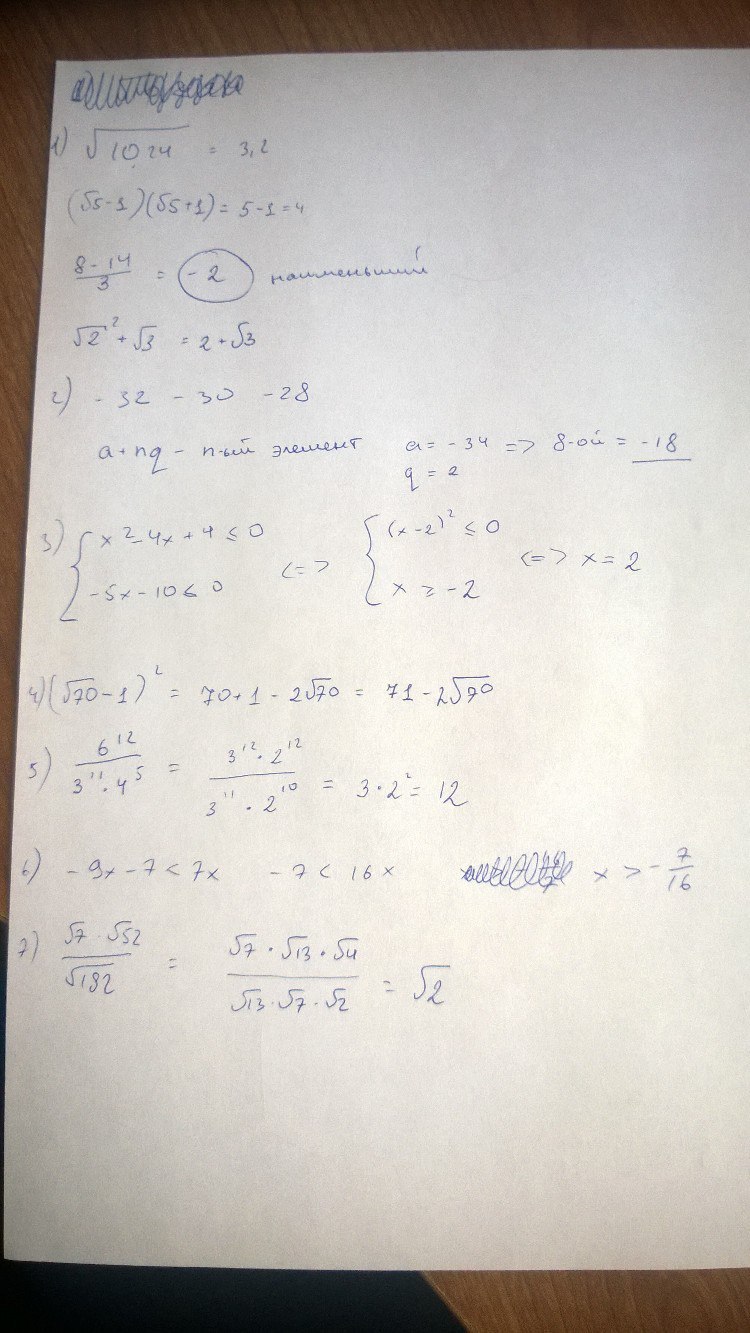 1) √10,24 = 3,2
(√5-1)(√5+1) = 5-1 = 4
8-14/3 = -2 наименьший
√2² + √3 = 2+√3
2) -32 -30 -28
a+nq - n-ый элемент a = -34 => 8-ой = -18
q = 2
3) { x²-4x+4 ≤ 0 <=> { (x-2)² ≤ 0 <=> x = 2
-5x-10 ≤ 0 x ≥ -2
4) (√70-1)² = 70+1-2√70 = 71-2√70
5) 6¹²/3¹¹·4⁵ = 3¹²·2¹²/3¹¹·2¹⁰ = 3·2² = 12
6) -9x-7<7x -7<16x x>-7/16
7) √7·√52/√182 = √7·√13·√4/√13·√7·√2 = √2